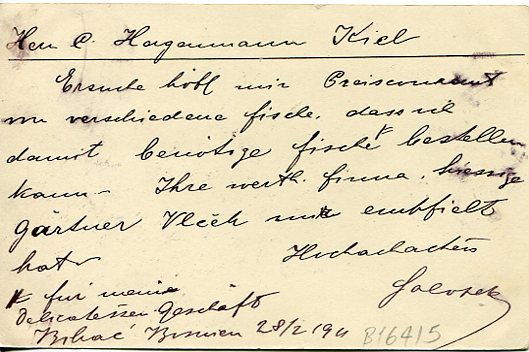 Herr C. Hagenmann Kiel
Ersuche höfl mir Preiscourant
von verschiedene fische, dass ich
damit benötige fische bestellen
kann – Ihre werth. firma, hiesige
gärtner Vlček mir embfielt
hat
Hochachtend
für meine
delicatessen Geschäft
Bihać Bosnien 28/2 1911
B16415